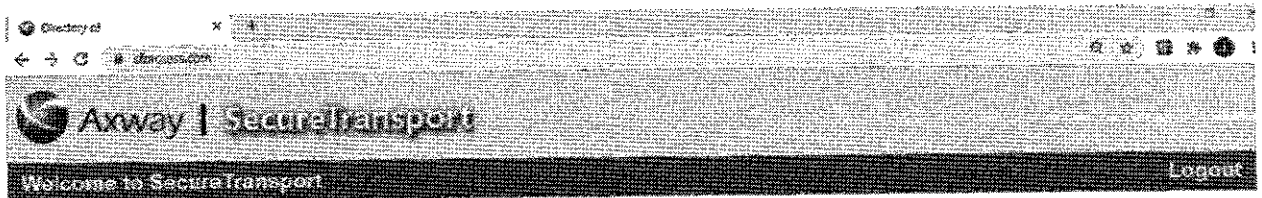 Directory of
Axway | SecureTransport
Welcome to SecureTransport
Logout